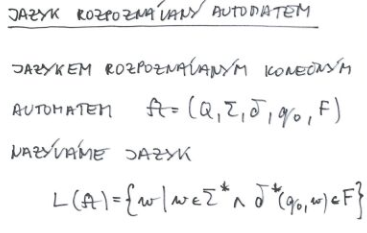 JAZYK ROZPOZNÁVANÝ AUTOMATEM
JAZYKEM ROZPOZNÁVANÝM KONEČNÝM
AUTOMATEM A = (Q, Σ, δ, q₀, F)
NAZÝVÁME JAZYK
L(A) = {w | w ∈ Σ* ∧ δ*(q₀, w) ∈ F}